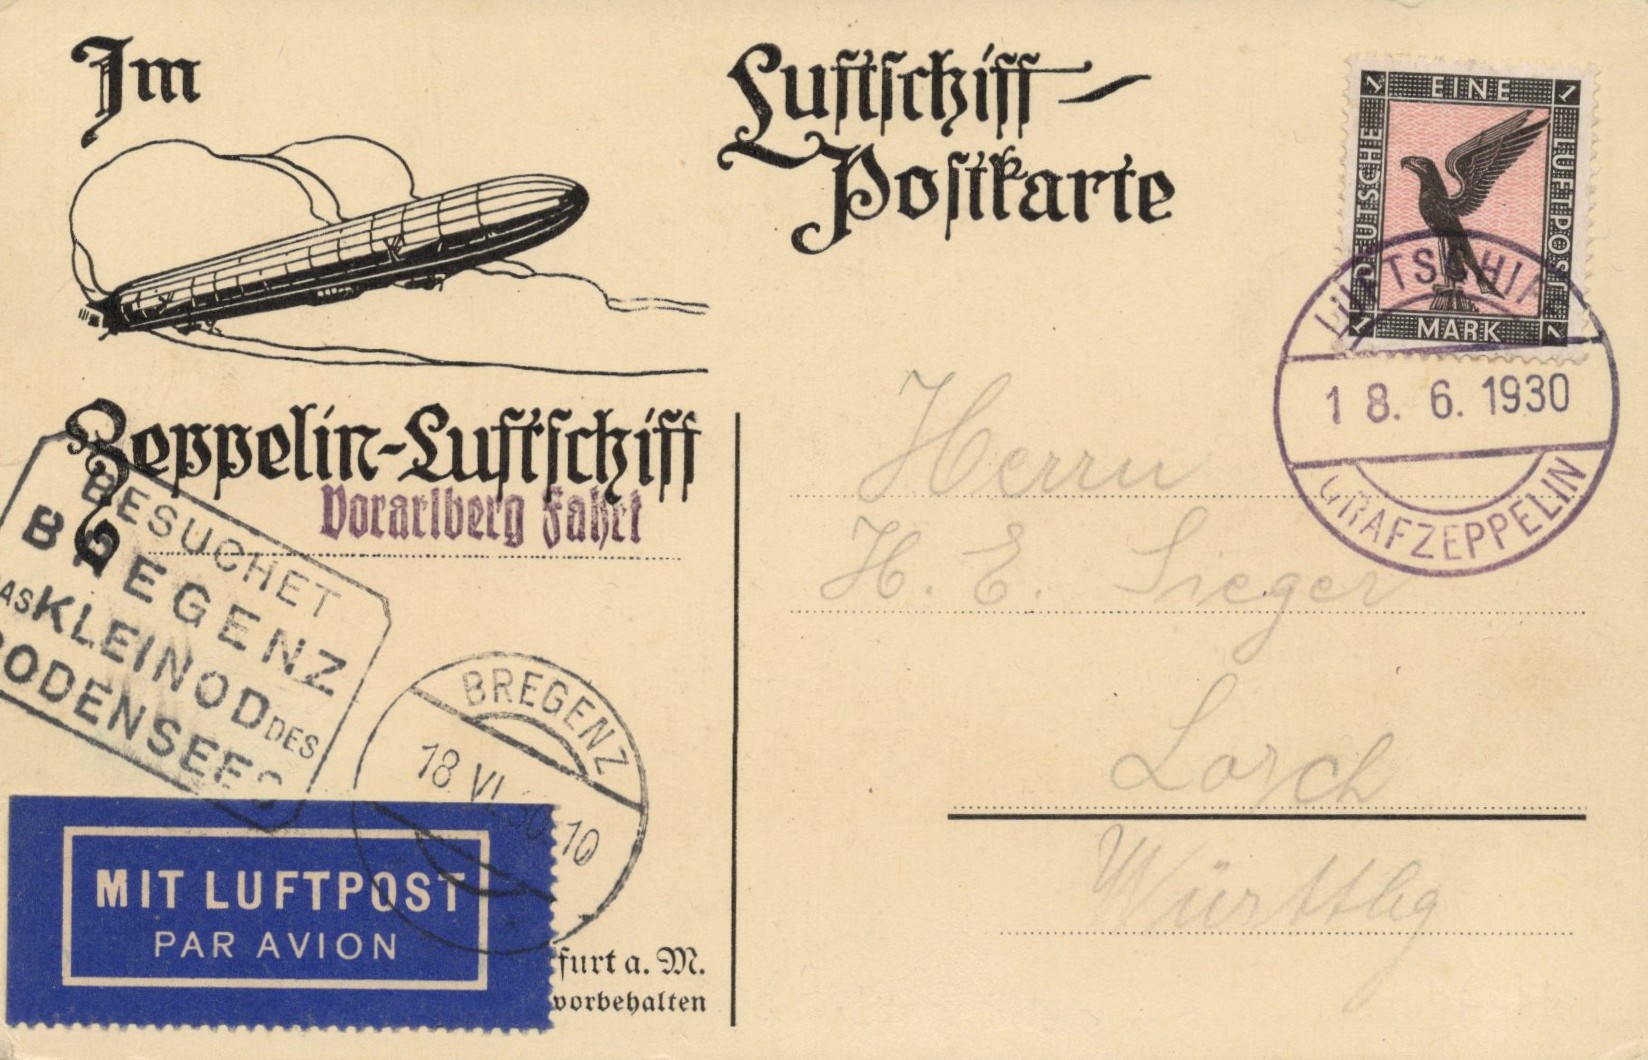 Im
Zeppelin-Luftschiff
Vorarlberg Fahrt
BESUCHET
BREGENZ
DAS KLEINOD DES
BODENSEES
BREGENZ
18 VI. 30. 10
MIT LUFTPOST
PAR AVION
furt a. M.
vorbehalten
Luftschiff-
Postkarte
1 EINE 1
DEUTSCHE
LUFTPOST
1 MARK 1
LUFTSCHIFF
18. 6. 1930
GRAF ZEPPELIN
Herrn
H. E. Sieger
Lorch
Württbg